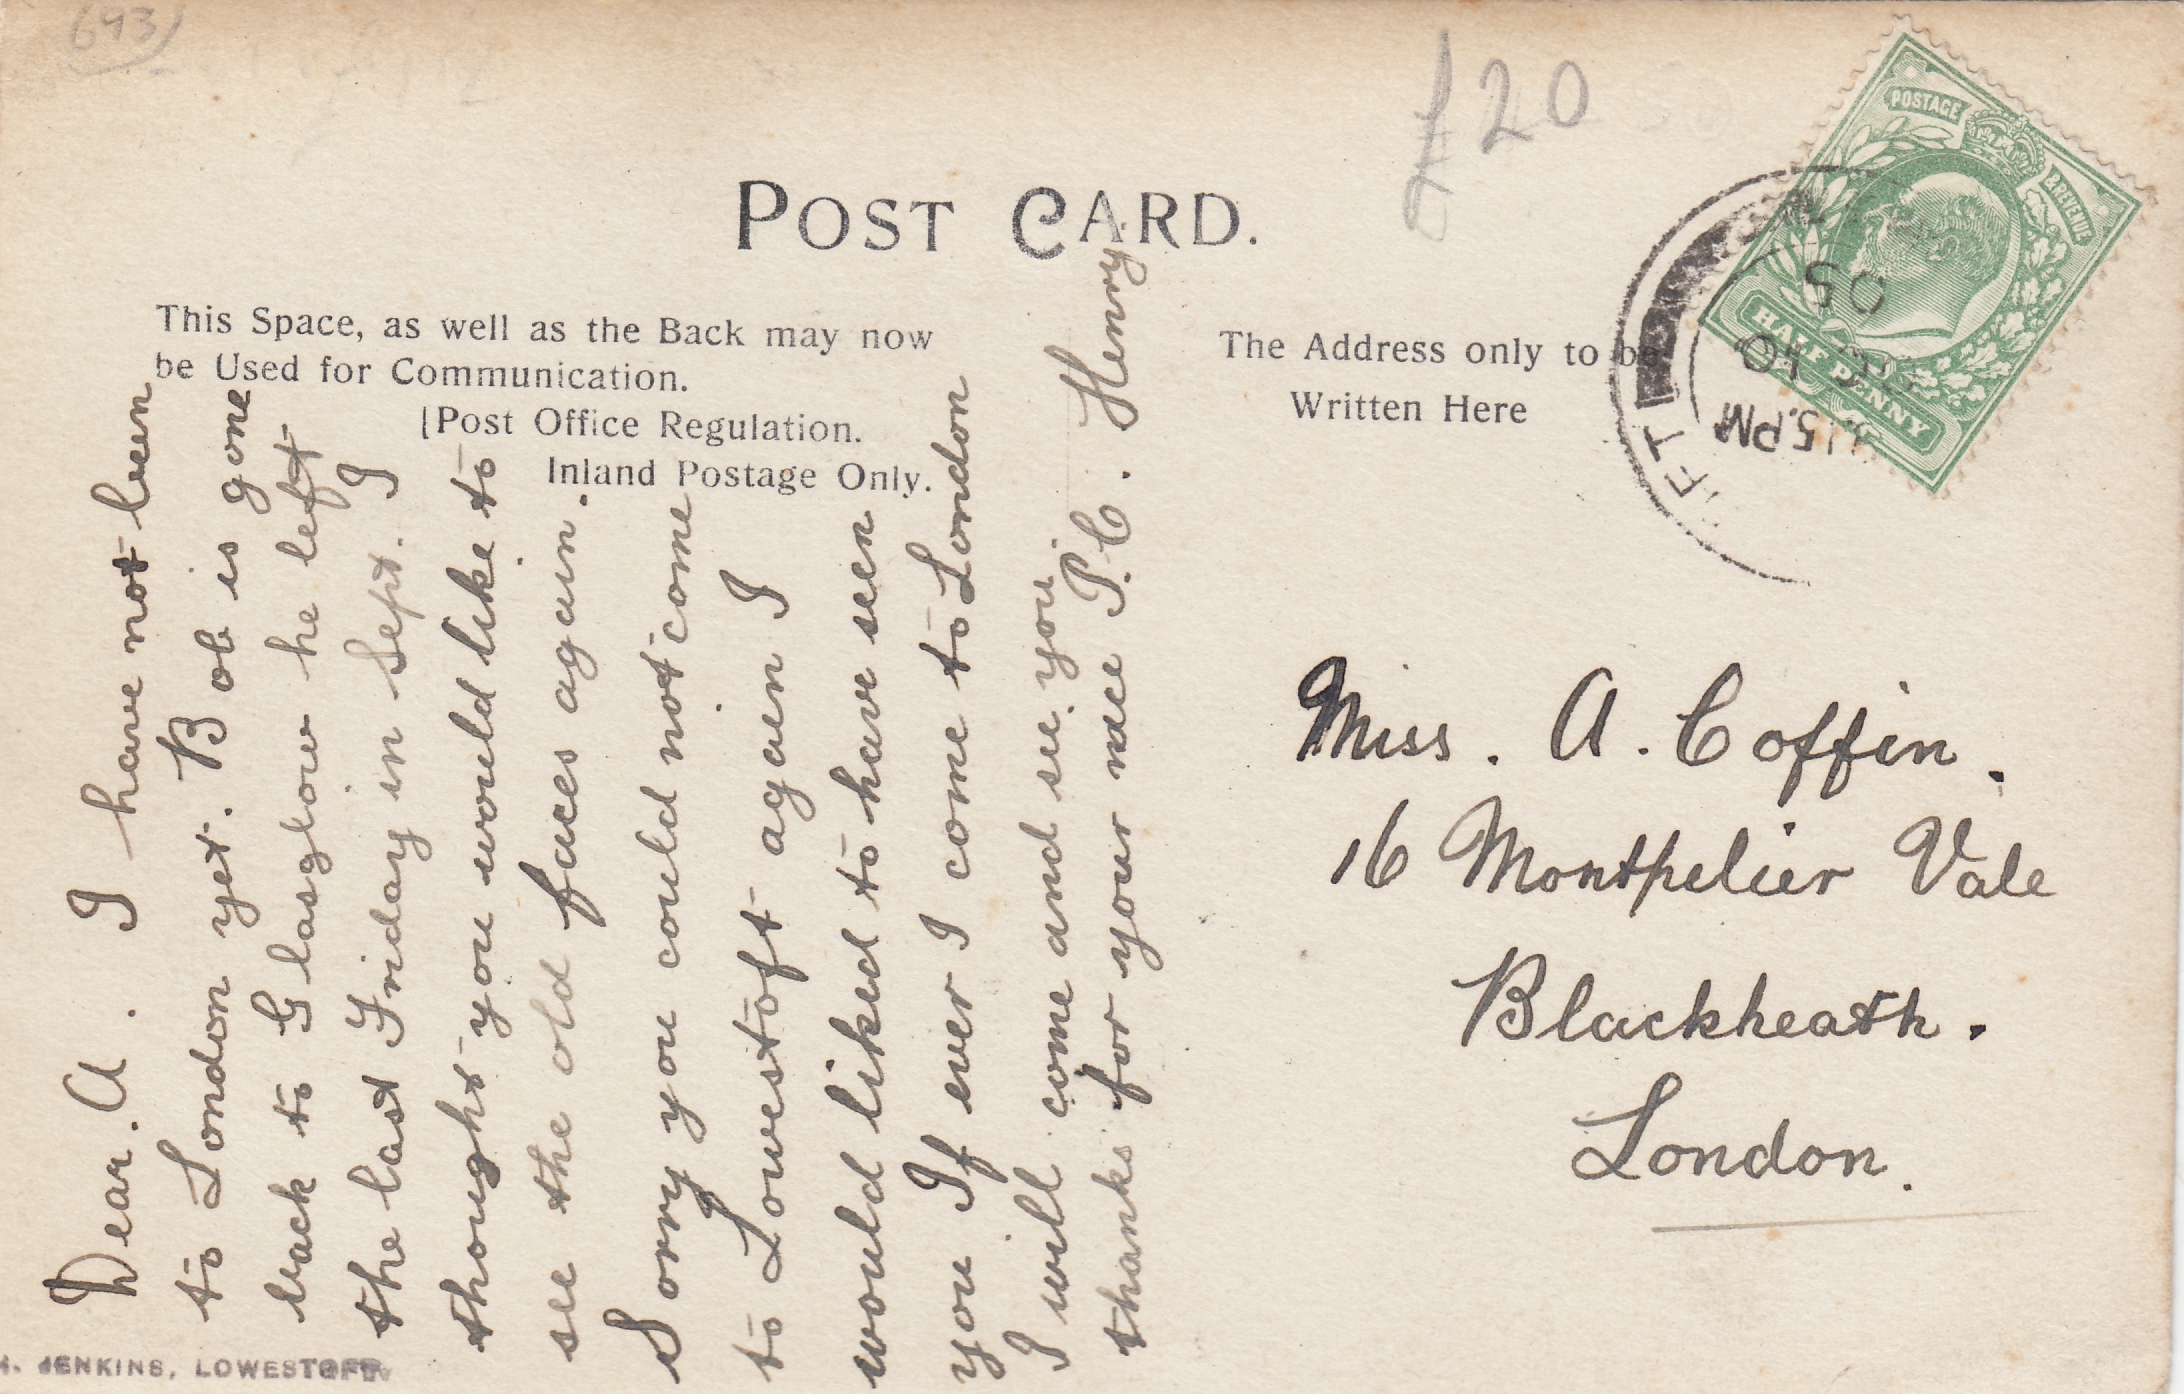 693
£20
POSTAGE
& REVENUE
HALF PENNY
POST CARD.
This Space, as well as the Back may now
be Used for Communication.
[Post Office Regulation.
Inland Postage Only.
The Address only to be
Written Here
15.PM
10
05
FT
Dear. A. I have not been
to London yet. Bob is gone
back to Glasglow he left
the last Friday in Sept. I
thought you would like to
see the old faces again.
Sorry you could not come
to Lowestoft again I
would liked to have seen
you If ever I come to London
I will come and see you
thanks for your nice P.C. Henry
Miss. A. Coffin.
16 Montpelier Vale
Blackheath.
London.
H. JENKINS, LOWESTOFT